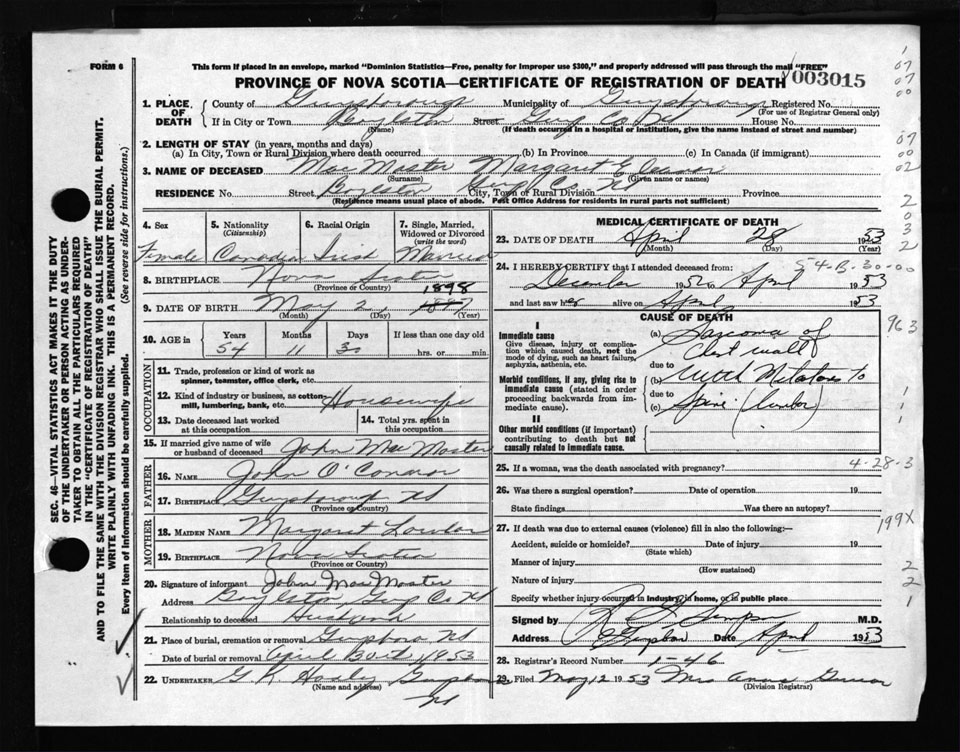 FORM 6
This form if placed in an envelope, marked "Dominion Statistics—Free, penalty for improper use $300," and properly addressed will pass through the mail "FREE"
PROVINCE OF NOVA SCOTIA—CERTIFICATE OF REGISTRATION OF DEATH
003015
1. PLACE OF DEATH
County of Guysborough Municipality of Guysborough Registered No.
(For use of Registrar General only)
If in City or Town Boylston Street Guys Co NS House No.
(Name) (If death occurred in a hospital or institution, give the name instead of street and number)
2. LENGTH OF STAY (in years, months and days)
(a) In City, Town or Rural Division where death occurred (b) In Province (c) In Canada (if immigrant)
3. NAME OF DECEASED MacMaster Margaret
(Surname) (Given name or names)
RESIDENCE No. Street Boylston Guys Co NS City, Town or Rural Division Province
(Residence means usual place of abode. Post Office Address for residents in rural parts not sufficient)
4. Sex 5. Nationality (Citizenship) 6. Racial Origin 7. Single, Married, Widowed or Divorced (write the word)
Female Canadian Irish Married
8. BIRTHPLACE Nova Scotia
(Province or Country)
1898
9. DATE OF BIRTH May 2 1897
(Month) (Day) (Year)
10. AGE in Years Months Days If less than one day old
54 11 30 hrs. or min.
OCCUPATION
11. Trade, profession or kind of work as spinner, teamster, office clerk, etc.
12. Kind of industry or business, as cotton-mill, lumbering, bank, etc. Housewife
13. Date deceased last worked at this occupation
14. Total yrs. spent in this occupation
15. If married give name of wife or husband of deceased John MacMaster
FATHER
16. NAME John O'Connor
17. BIRTHPLACE Guysborough NS
(Province or Country)
MOTHER
18. MAIDEN NAME Margaret
19. BIRTHPLACE Nova Scotia
(Province or Country)
20. Signature of informant John MacMaster
Address Boylston, Guys Co NS
Relationship to deceased Husband
21. Place of burial, cremation or removal Guysboro NS
Date of burial or removal April 30th 1953
22. UNDERTAKER G R
(Name and address)
NS
MEDICAL CERTIFICATE OF DEATH
23. DATE OF DEATH April 28 1953
(Month) (Day) (Year)
54-B-30-00
24. I HEREBY CERTIFY that I attended deceased from:
December 1952 to April 1953
and last saw her alive on April 1953
CAUSE OF DEATH
I
Immediate cause
Give disease, injury or complication which caused death, not the mode of dying, such as heart failure, asphyxia, asthenia, etc.
(a) Sarcoma of
Chest wall
due to
Morbid conditions, if any, giving rise to immediate cause (stated in order proceeding backwards from immediate cause).
(b) with to
due to
(c) Spine (lumbar)
II
Other morbid conditions (if important) contributing to death but not causally related to immediate cause.
25. If a woman, was the death associated with pregnancy? 4-28-3
26. Was there a surgical operation? Date of operation 19
State findings Was there an autopsy?
27. If death was due to external causes (violence) fill in also the following:—
Accident, suicide or homicide? Date of injury 19
(State which)
Manner of injury
(How sustained)
Nature of injury
Specify whether injury occurred in industry, in home, or in public place
Signed by M.D.
Address Date April 1953
28. Registrar's Record Number 1-46
29. Filed May 12 1953 Mrs
(Division Registrar)
SEC. 46—VITAL STATISTICS ACT MAKES IT THE DUTY
OF THE UNDERTAKER OR PERSON ACTING AS UNDER-
TAKER TO OBTAIN ALL THE PARTICULARS REQUIRED
IN THE "CERTIFICATE OF REGISTRATION OF DEATH"
AND TO FILE THE SAME WITH THE DIVISION REGISTRAR WHO SHALL ISSUE THE BURIAL PERMIT.
WRITE PLAINLY WITH UNFADING INK. THIS IS A PERMANENT RECORD.
Every item of Information should be carefully supplied. (See reverse side for instructions.)
07
07
00
07
00
02
2
0
3
2
963
1
1
1
199X
2
2
1